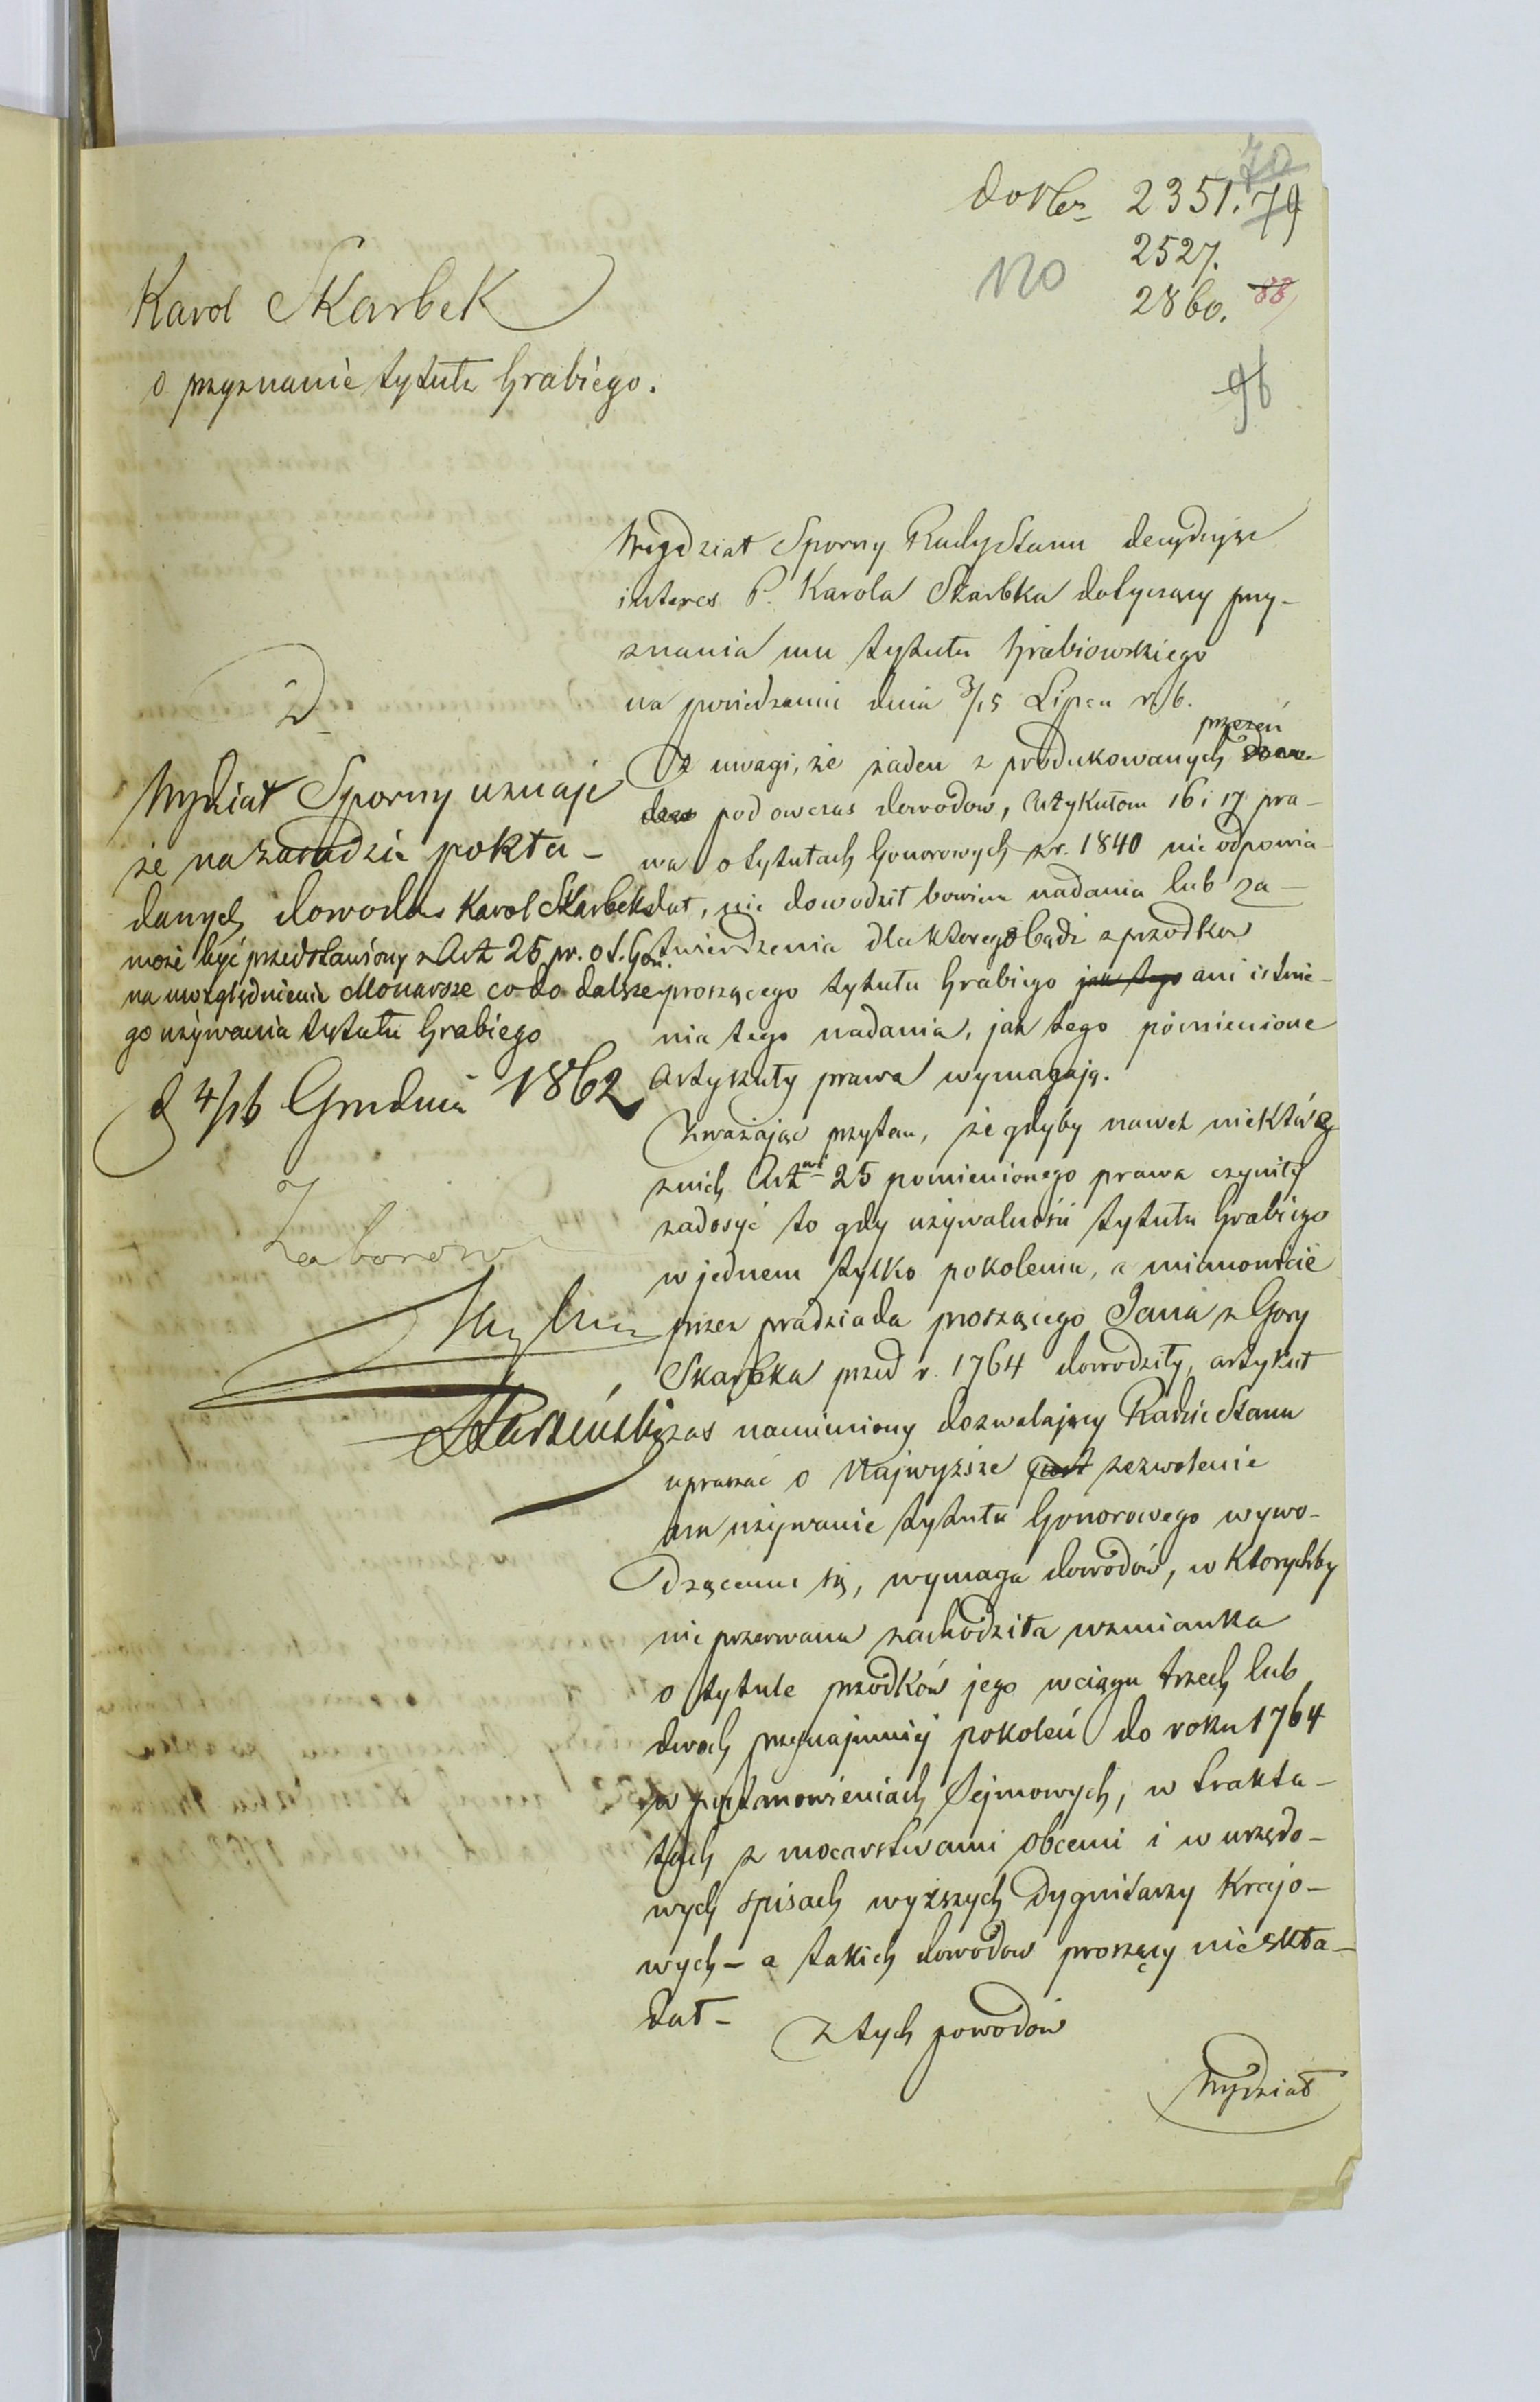 do Nru 2351. 79
70
2527.
2860. 88
120
96
Karol Skarbek
o przyznanie tytułu Hrabiego.
Wydział Sporny Rady Stanu decydując
interes P. Karola Skarbka dotyczący przy-
znania mu tytułu Hrabiowskiego
na posiedzeniu dnia 3/15 Lipca r. b.
Z uwagi, że żaden z produkowanych przezeń
pod owczas dowodow, Artykułom 16 i 17 pra-
wa o tytułach honorowych z r. 1840 nie odpowia-
dał, nie dowodził bowiem nadania lub za-
twierdzenia dla któregobądź z przodków
proszącego tytułu Hrabiego jak tego ani istnie-
nia tego nadania, jak tego pomienione
Artykuły prawa wymagają.
Zważając przytem, że gdyby nawet niektóre
z nich Artwi 25 pomienionego prawa czyniły
zadosyć to gdy używalność tytułu Hrabiego
w jednem tylko pokoleniu, a mianowicie
przez pradziada proszącego Jana z Gory
Skarbka przed r. 1764 dowodziły, artykuł
zaś namieniony dozwalający Radzie Stanu
upraszać o Najwyższe zezwolenie
na używanie tytułu honorowego wywo-
dzącemu się, wymaga dowodów, w którychby
nieprzerwana zachodziła wzmianka
o tytule przodków jego w ciągu trzech lub
dwóch przynajmniej pokoleń do roku 1764
w postanowieniach Sejmowych, w trakta-
tach z mocarstwami obcemi i w urzędo-
wych spisach wyższych dygnitarzy krajo-
wych – a takich dowodow proszący nie skła-
dał –
z tych powodów
Wydział
D
Wydział Sporny uznaje
że na zasadzie pokła-
danych dowodów Karol Skarbek
może być przedstawiony z Art 25 pr. o t. hon.
na uwzględnienie Monarsze co do dalsze-
go używania tytułu Hrabiego
d 4/16 Grudnia 1862